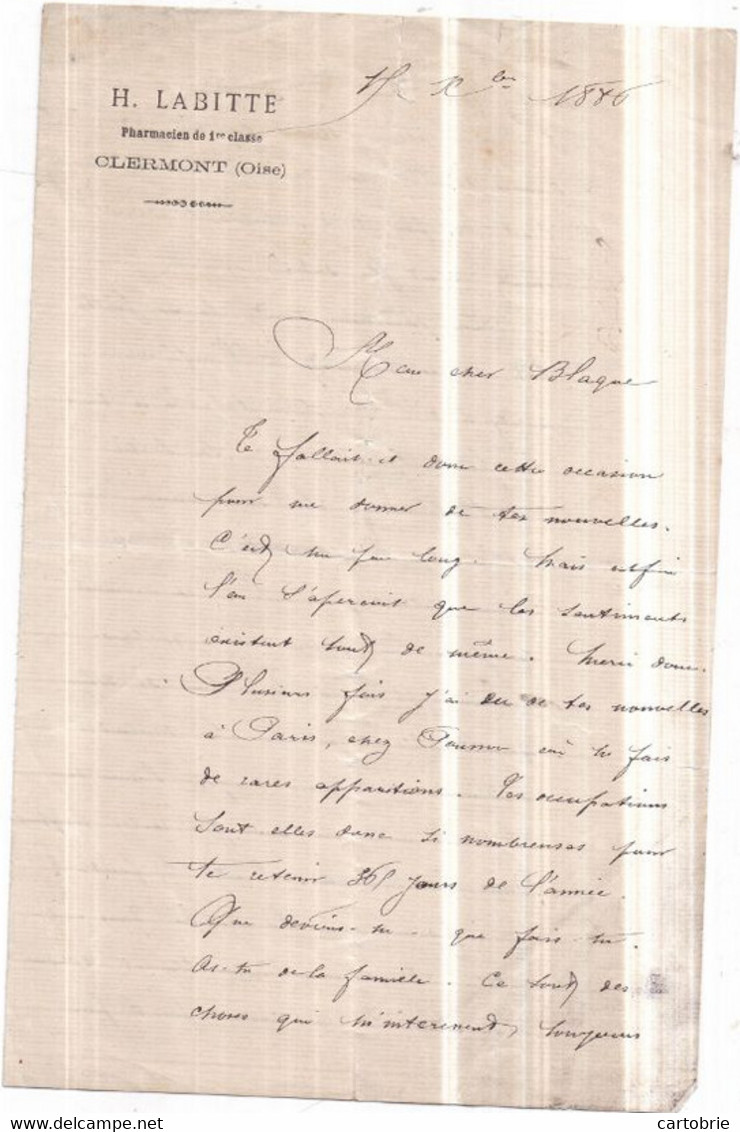 H. LABITTE
Pharmacien de 1re classe
CLERMONT (Oise)
Xbre 1886
Mon cher Blaque
Te fallait-il donc cette occasion
pour me donner de tes nouvelles.
C'est un peu long. Mais enfin
l'on s'aperçoit que les sentiments
existent tout de même. Merci donc.
Plusieurs fois j'ai eu de tes nouvelles
à Paris, chez où tu fais
de rares apparitions. Tes occupations
sont elles donc si nombreuses pour
te retenir 365 jours de l'année.
Que deviens-tu - que fais-tu.
As-tu de la famille. Ce sont des
choses qui m'interessent toujours
cartobrie